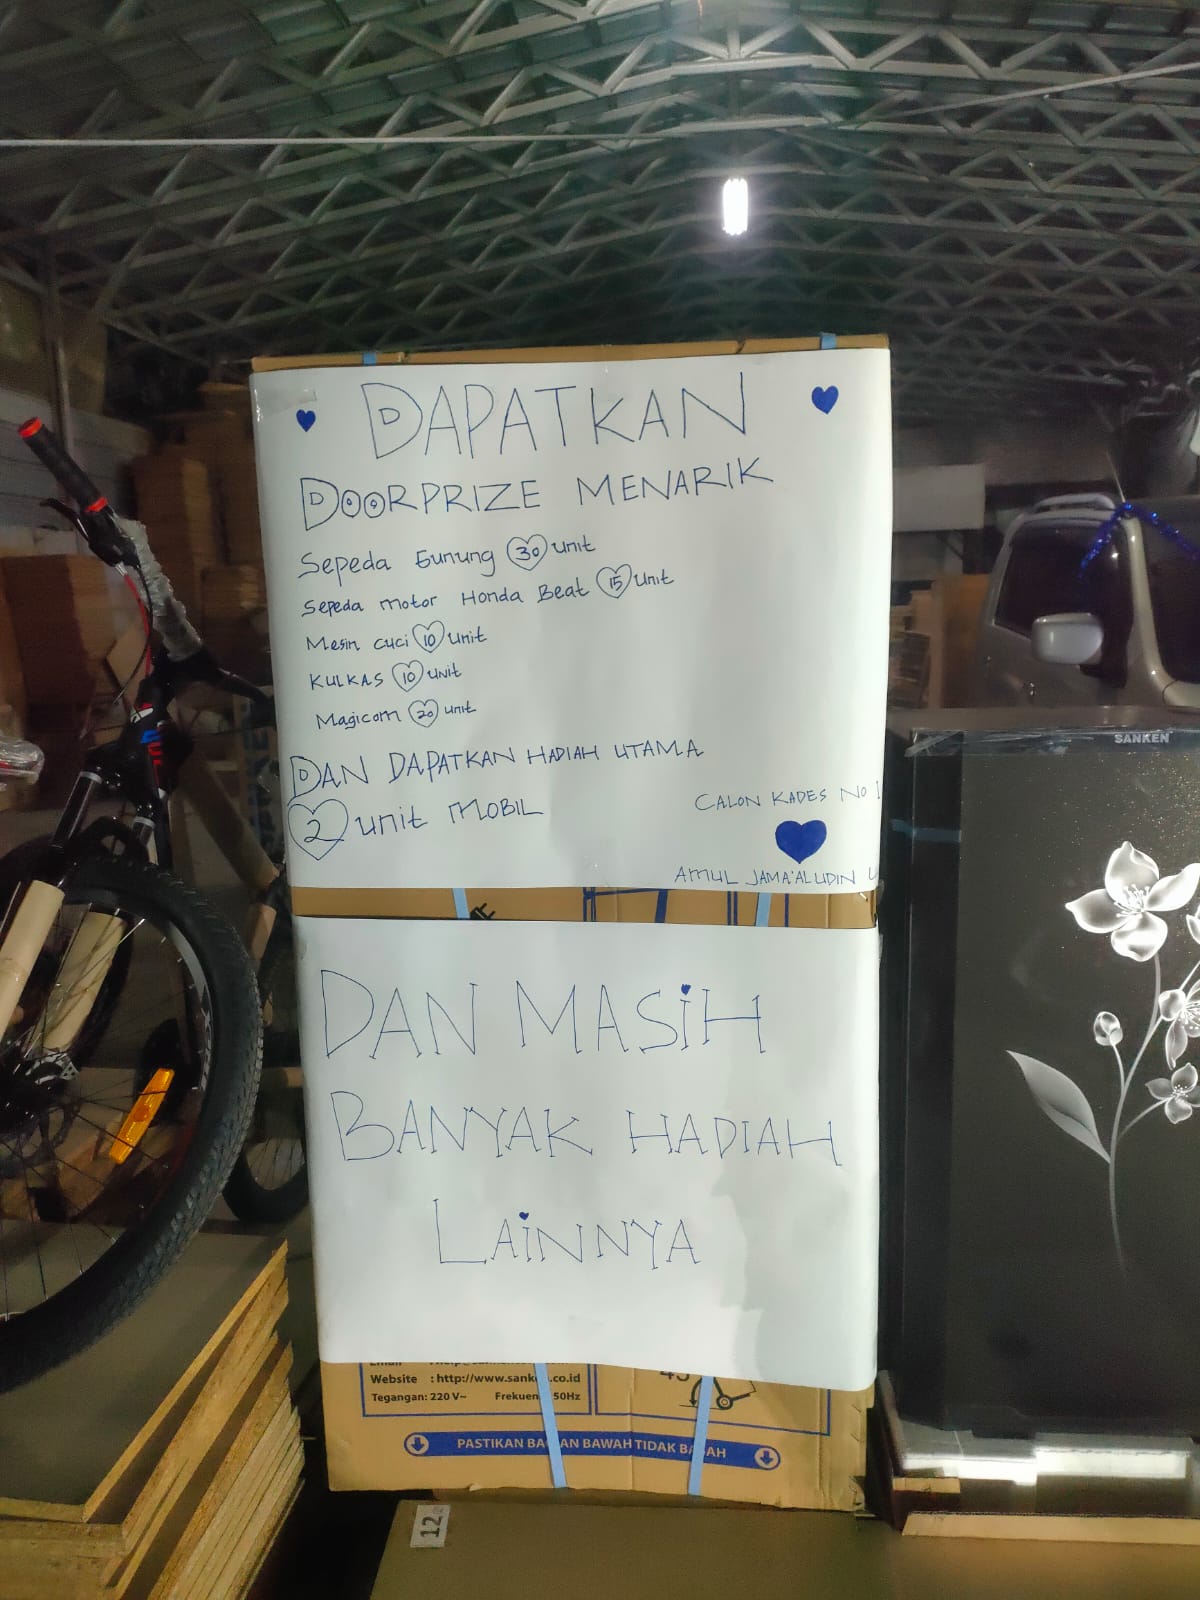 DAPATKAN
DOORPRIZE MENARIK
Sepeda Gunung 30 unit
Sepeda motor Honda Beat 15 unit
Mesin cuci 10 unit
KULKAS 10 unit
Magicom 20 unit
DAN DAPATKAN HADIAH UTAMA
2 unit MOBIL
CALON KADES NO 1
AMUL JAMA'ALUDIN
SANKEN
DAN MASIH
BANYAK HADIAH
LAINNYA
Website : http://www.sanken.co.id
Tegangan: 220 V~ Frekuen 50Hz
PASTIKAN BAGIAN BAWAH TIDAK BASAH
12